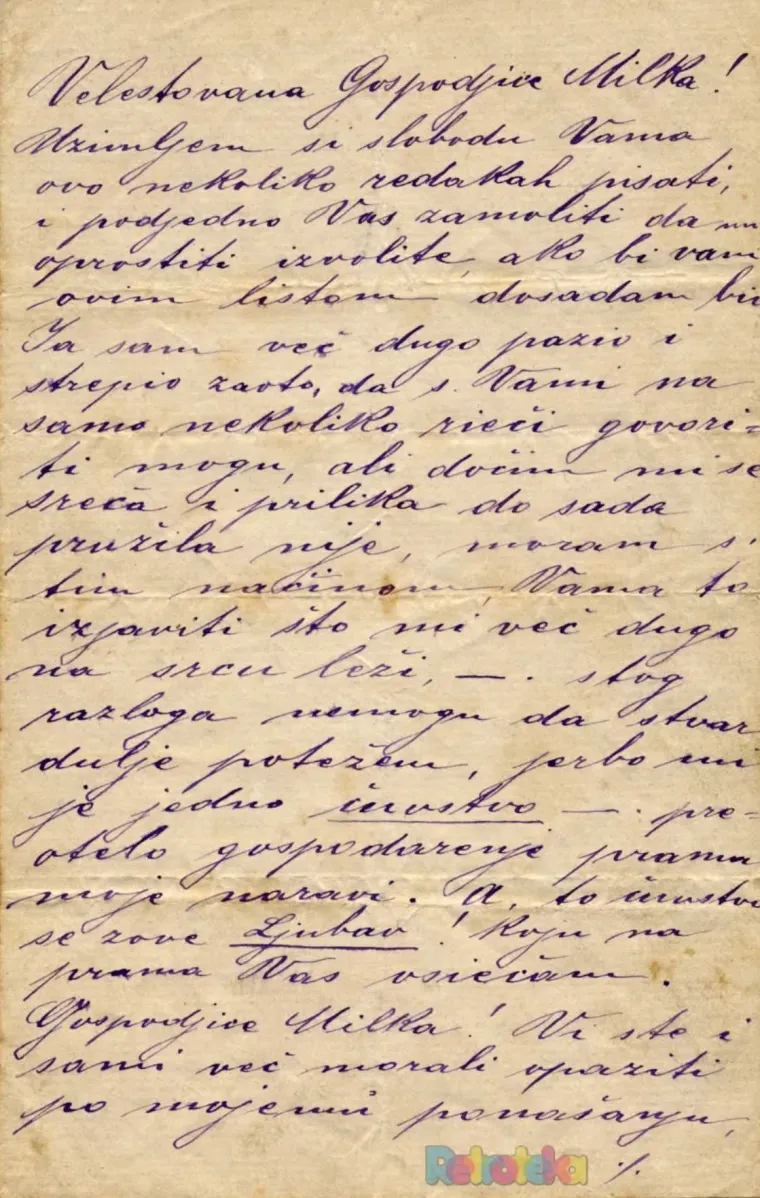 Velestovana Gospodjice Milka!
Uzimljem si slobodu Vama
ovo nekoliko redakah pisati,
i podjedno Vas zamoliti da mi
oprostiti izvolite, ako bi vam
ovim listom dosadam bio
Ja sam već dugo pazio i
strepio zaoto, da s. Vami na
samo nekoliko rieči govori=
ti mogu, ali dočim mi se
sreća i prilika do sada
pružila nije, moram s'
tim načinom, Vama to
izjaviti što mi već dugo
na srcu leži, —. stog
razloga nemogu da stvar
dulje potežem, jerbo mi
je jedno čuvstvo —. pre=
otelo gospodarenje prama
moje naravi. A, to čuvstvo
se zove Ljubav! koju na
prama Vas osiećam.
Gospodjice Milka! Vi ste i
sami već morali opaziti
po mojemu ponašanju,
Retroteka ·/.